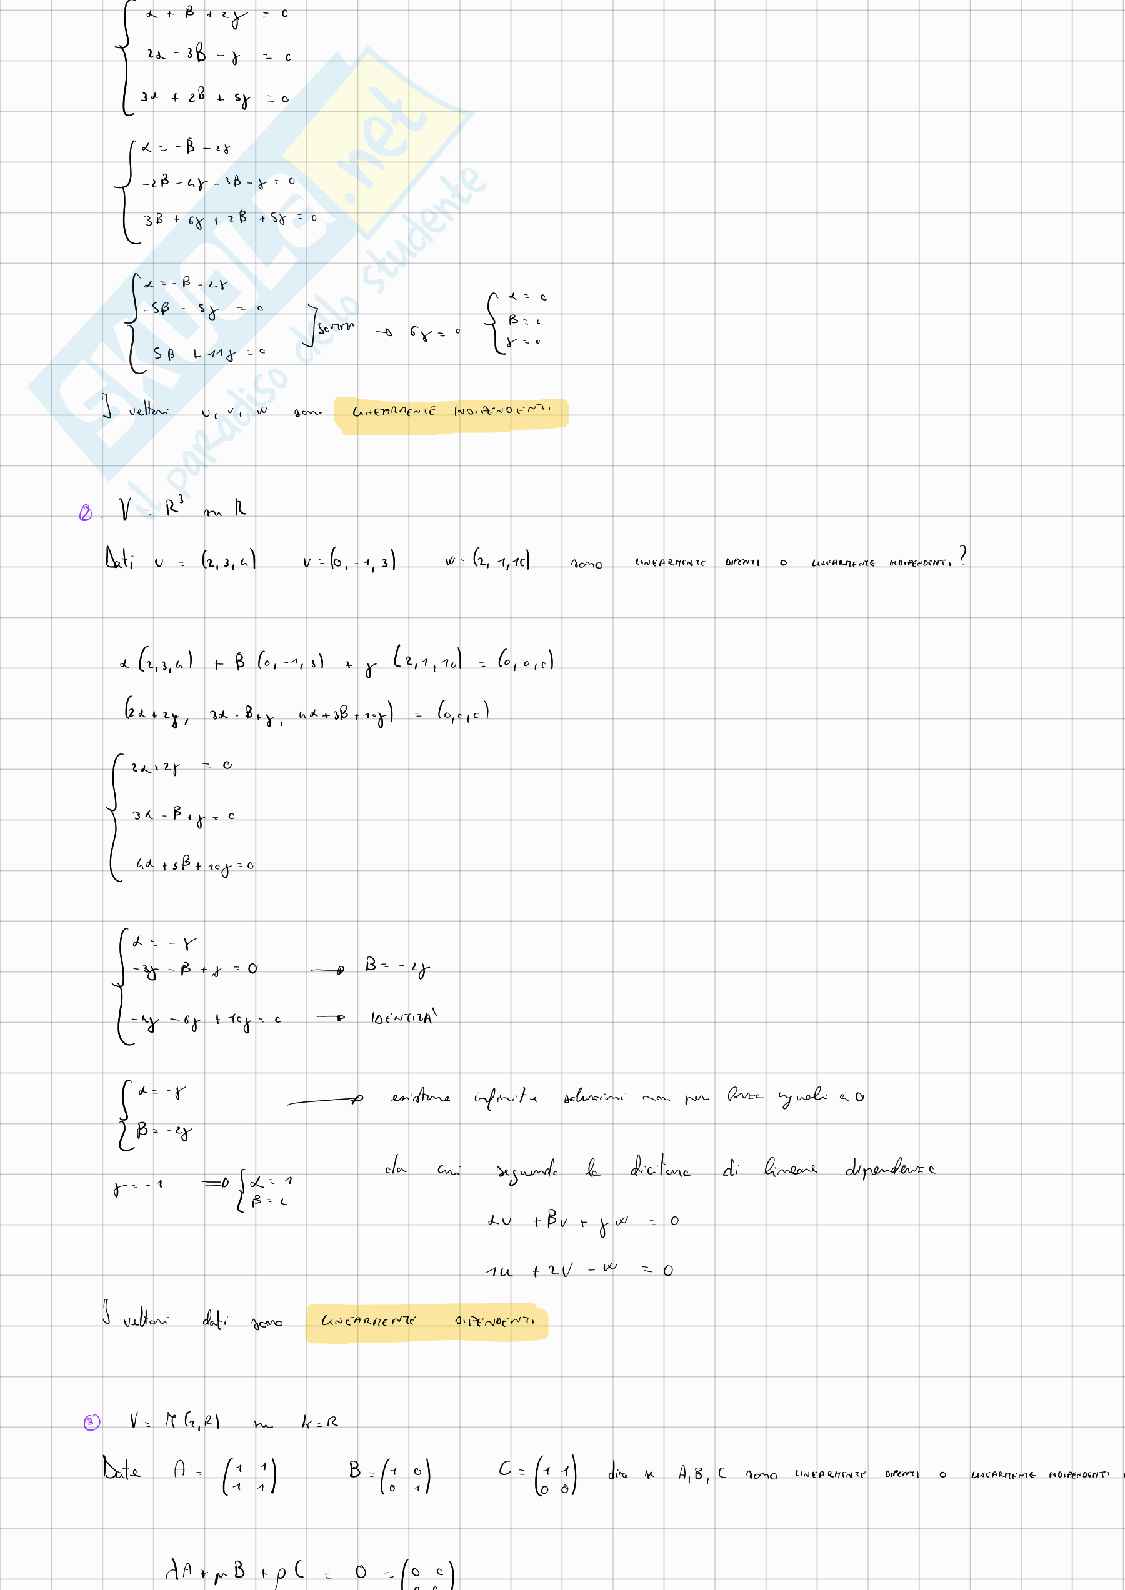 α + β + 2γ = 0
2α - 3β - γ = 0
3α + 2β + 5γ = 0
α = -β - 2γ
-2β - 4γ - 3β - γ = 0
3β + 6γ + 2β + 5γ = 0
α = -β - 2γ
-5β - 5γ = 0
5β + 11γ = 0
} somma → 6γ = 0
α = 0
β = 0
γ = 0
I vettori u, v, w sono LINEARMENTE INDIPENDENTI
② V = R³ su R
Dati u = (2,3,4) v = (0,-1,3) w = (2,1,10) sono LINEARMENTE DIPENTI O LINEARMENTE INDIPENDENTI?
α(2,3,4) + β(0,-1,3) + γ(2,1,10) = (0,0,0)
(2α+2γ, 3α-β+γ, 4α+3β+10γ) = (0,0,0)
2α+2γ = 0
3α - β + γ = 0
4α + 3β + 10γ = 0
α = -γ
-3γ - β + γ = 0 → β = -2γ
-4γ - 6γ + 10γ = 0 → IDENTITÀ
α = -γ
β = -2γ
→ esistono infinite soluzioni non per forza uguali a 0
da cui seguendo la dicitura di lineare dipendenza
γ = -1 ⇒ { α = 1
β = 2
αu + βv + γw = 0
1u + 2v - w = 0
I vettori dati sono LINEARMENTE DIPENDENTI
③ V = M(2,R) su K=R
Date A = (1 1 B = (1 0 C = (1 1 dire se A, B, C sono LINEARMENTE DIPENTI O LINEARMENTE INDIPENDENTI
1 1) 0 1) 0 0)
λA + μB + ρC = 0 = (0 0
SKUOLA.net
il paradiso dello studente